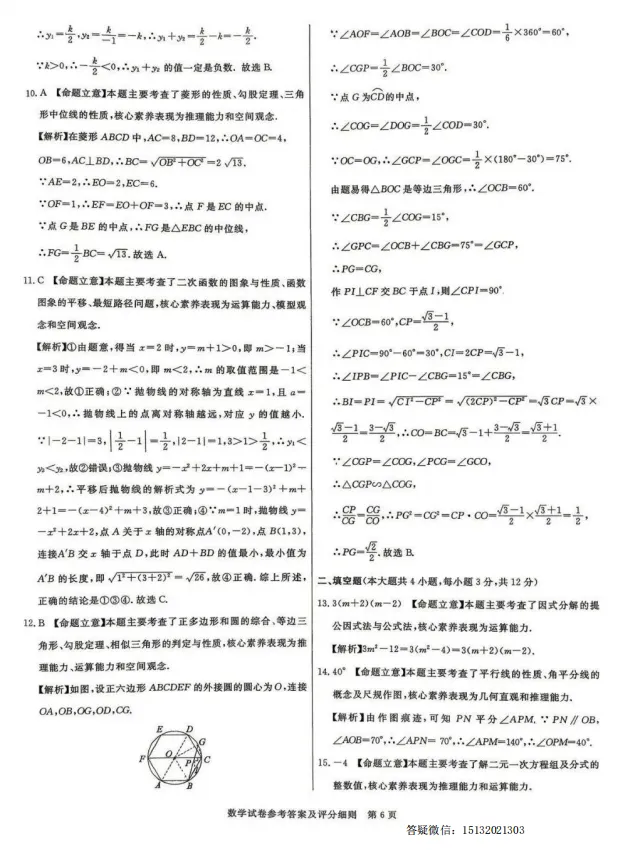 ∴y₁=k/2,y₂=k/-1=-k,∴y₁+y₂=k/2-k=-k/2.
∵k>0,∴-k/2<0,∴y₁+y₂ 的值一定是负数. 故选 B.
10. A 【命题立意】本题主要考查了菱形的性质、勾股定理、三角
形中位线的性质,核心素养表现为推理能力和空间观念.
【解析】在菱形 ABCD 中,AC=8,BD=12,∴OA=OC=4,
OB=6,AC⊥BD,∴BC=√(OB²+OC²)=2√13.
∵AE=2,∴EO=2,EC=6.
∵OF=1,∴EF=EO+OF=3,∴点 F 是 EC 的中点.
∵点 G 是 BE 的中点,∴FG 是△EBC 的中位线,
∴FG=1/2BC=√13. 故选 A.
11. C 【命题立意】本题主要考查了二次函数的图象与性质、函数
图象的平移、最短路径问题,核心素养表现为运算能力、模型观
念和空间观念.
【解析】①由题意,得当 x=2 时,y=m+1>0,即 m>-1;当
x=3 时,y=-2+m<0,即 m<2,∴m 的取值范围是 -1<
m<2,故①正确;②∵抛物线的对称轴为直线 x=1,且 a=
-1<0,∴抛物线上的点离对称轴越远,对应 y 的值越小.
∵|-2-1|=3,|1/2-1|=1/2,|2-1|=1,3>1>1/2,∴y₁<
y₃<y₂,故②错误;③抛物线 y=-x²+2x+m+1=-(x-1)²+
m+2,∴平移后抛物线的解析式为 y=-(x-1-3)²+m+
2+1=-(x-4)²+m+3,故③正确;④∵m=1 时,抛物线 y=
-x²+2x+2,点 A 关于 x 轴的对称点A′(0,-2),点 B(1,3),
连接A′B 交 x 轴于点 D,此时 AD+BD 的值最小,最小值为
A′B 的长度,即√(1²+(3+2)²)=√26,故④正确. 综上所述,
正确的结论是①③④. 故选 C.
12. B 【命题立意】本题主要考查了正多边形和圆的综合、等边三
角形、勾股定理、相似三角形的判定与性质,核心素养表现为推
理能力、运算能力和空间观念.
【解析】如图,设正六边形 ABCDEF 的外接圆的圆心为 O,连接
OA,OB,OG,OD,CG.
E D
G
F O P C
A B
∵∠AOF=∠AOB=∠BOC=∠COD=1/6×360°=60°,
∴∠CGP=1/2∠BOC=30°.
∵点 G 为CD的中点,
∴∠COG=∠DOG=1/2∠COD=30°.
∵OC=OG,∴∠GCP=∠OGC=1/2×(180°-30°)=75°.
由题易得△BOC 是等边三角形,∴∠OCB=60°.
∵∠CBG=1/2∠COG=15°,
∴∠GPC=∠OCB+∠CBG=75°=∠GCP,
∴PG=CG,
作 PI⊥CF 交 BC 于点 I,则∠CPI=90°
∵∠OCB=60°,CP=(√3-1)/2,
∴∠PIC=90°-60°=30°,CI=2CP=√3-1,
∴∠IPB=∠PIC-∠CBG=15°=∠CBG,
∴BI=PI=√(CI²-CP²)=√((2CP)²-CP²)=√3CP=√3×
(√3-1)/2=(3-√3)/2,∴CO=BC=√3-1+(3-√3)/2=(√3+1)/2.
∵∠CGP=∠COG,∠PCG=∠GCO,
∴△CGP∽△COG,
∴CP/CG=CG/CO,∴PG²=CG²=CP·CO=(√3-1)/2×(√3+1)/2=1/2,
∴PG=√2/2. 故选 B.
二、填空题(本大题共 4 小题,每小题 3 分,共 12 分)
13. 3(m+2)(m-2) 【命题立意】本题主要考查了因式分解的提
公因式法与公式法,核心素养表现为运算能力.
【解析】3m²-12=3(m²-4)=3(m+2)(m-2).
14. 40° 【命题立意】本题主要考查了平行线的性质、角平分线的
概念及尺规作图,核心素养表现为几何直观和推理能力.
【解析】由作图痕迹,可知 PN 平分∠APM. ∵PN∥OB,
∠AOB=70°,∴∠APN=70°,∴∠APM=140°,∴∠OPM=40°.
15. -4 【命题立意】本题主要考查了解二元一次方程组及分式的
整数值,核心素养表现为推理能力和运算能力.
数学试卷参考答案及评分细则 第 6 页
答疑微信: 15132021303